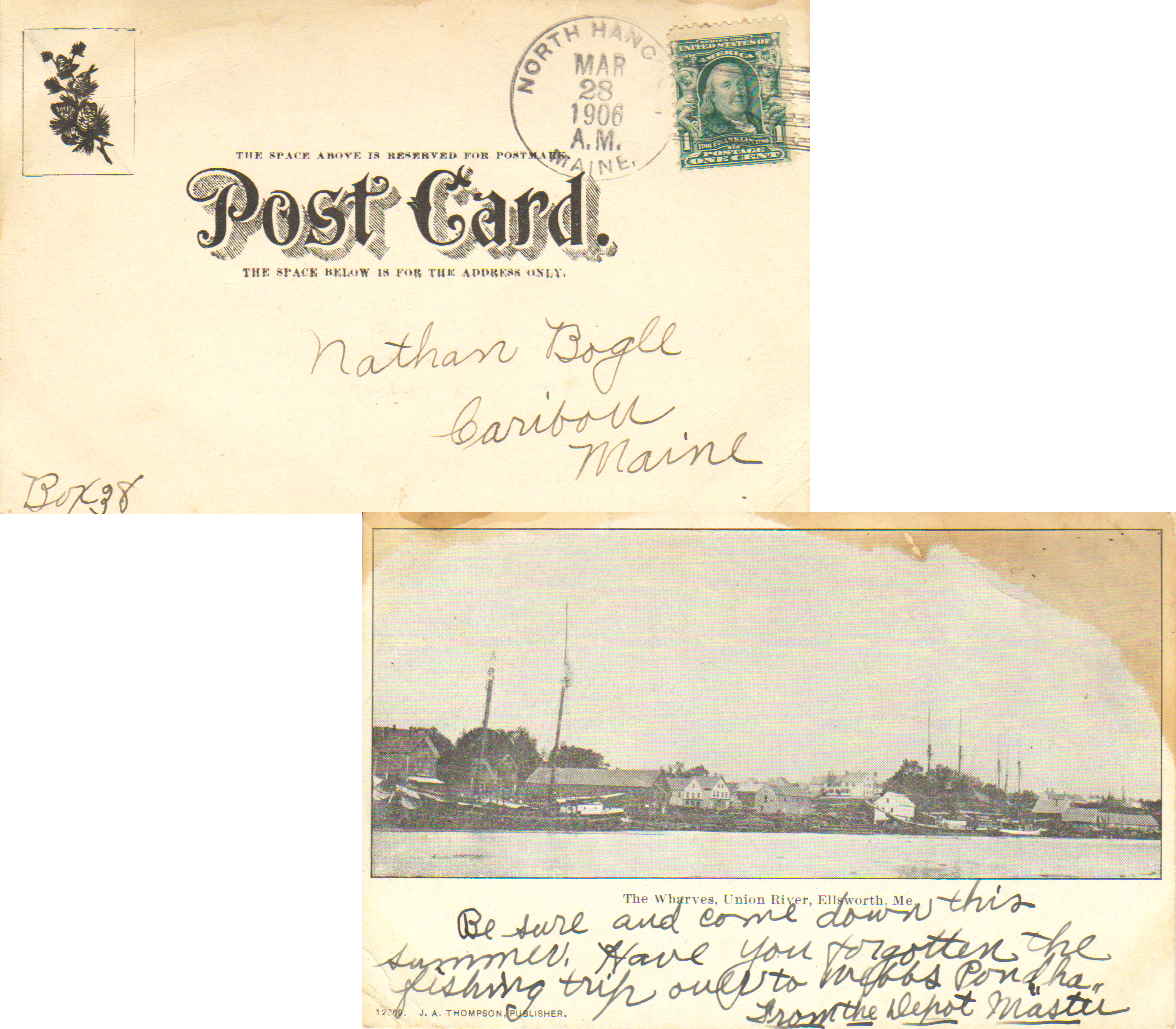 NORTH HANC
MAR
28
1906
A.M.
MAINE.
UNITED STATES OF
AMERICA
1 FRANKLIN 1
POSTAGE
ONE CENT
THE SPACE ABOVE IS RESERVED FOR POSTMARK.
Post Card.
THE SPACE BELOW IS FOR THE ADDRESS ONLY.
Nathan Bogle
Caribou
Maine
Box 38
The Wharves, Union River, Ellsworth, Me.
Be sure and come down this
summer. Have you forgotten the
fishing trip out to Webbs Pond, ha
From the Depot Master
J. A. THOMPSON, PUBLISHER.